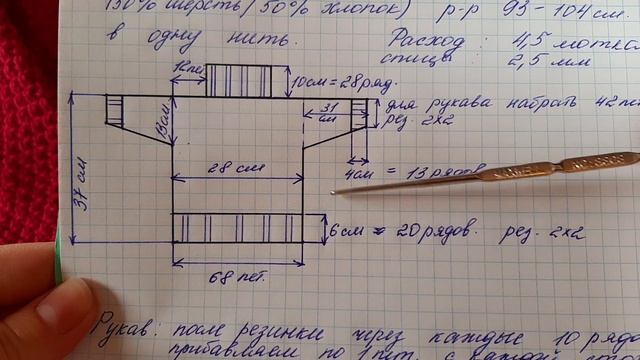 150% шерсть / 50% хлопок) р-р 93-104 см.
в одну нить.
Расход : 4,5 мотка
спицы : 2,5 мм
12 пет.
10 см = 28 ряд.
31 см
для рукава набрать 42 пет
рез. 2х2
13 см
37 см
28 см
4 см = 13 рядов
6 см = 20 рядов. рез. 2х2
68 пет.
Рукав: после резинки через каждые 10 рядо
прибавляем по 1 пет. с каждой сто